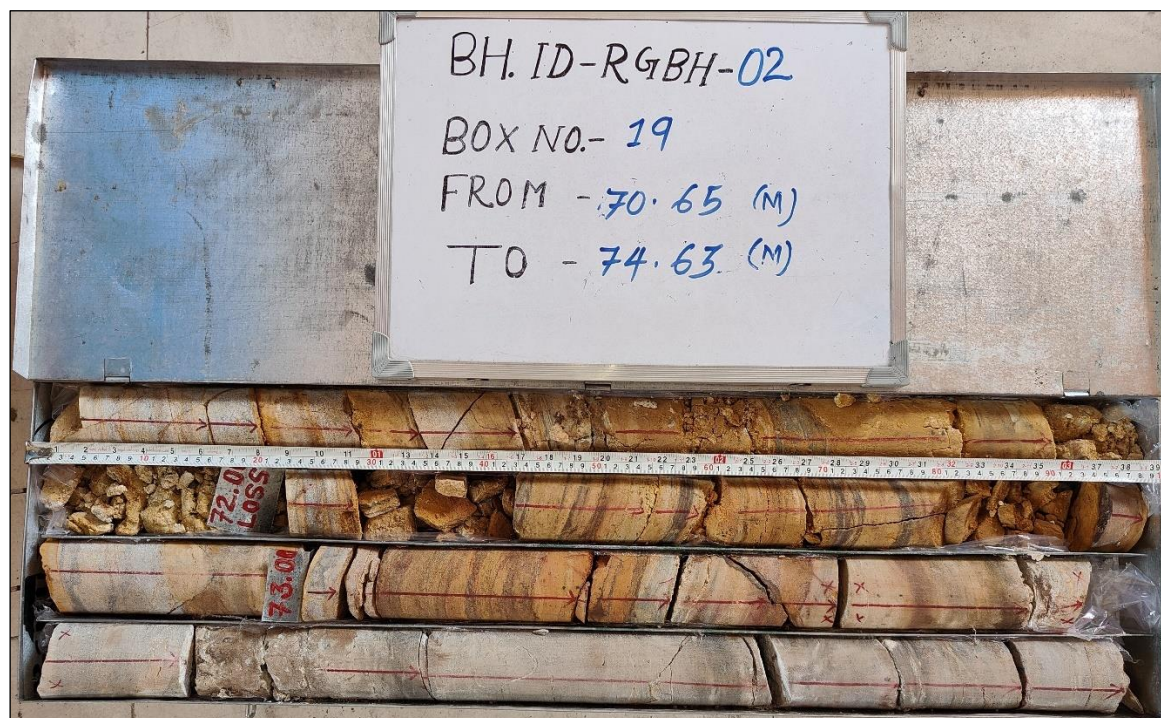 BH. ID-RGBH-02
BOX NO.- 19
FROM - 70.65 (M)
TO - 74.63 (M)
72.0
LOSS
73.00